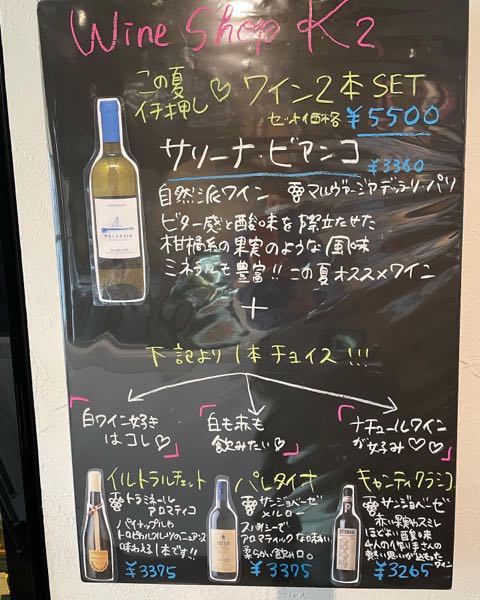 Wine Shop K2
この夏
イチ押し ♡ ワイン2本 SET
セット価格 ¥5500
サリーナ・ビアンコ ¥3360
自然派ワイン マルヴァージア デッラ リパリ
ビター感と酸味を際立たせた
柑橘系の果実のような風味
ミネラルも豊富!! この夏オススメワイン
MALVASIA
+
下記より1本チョイス!!!
白ワイン好き
はコレ♡
白も赤も
飲みたい♡
ナチュールワイン
が好み♡♡
イルトラルチェット
トラミネール
アロマティコ
パイナップルや
トロピカルフルーツのニュアンス
味わえる1本です!!
¥3375
パレタイオ
サンジョベーゼ
メルロー
スパイシーで
アロマティックな味わい
柔らかい飲み口。
¥3375
キャンティクラシコ
サンジョベーゼ
赤い果実やスミレ
ほどよい酸味
4人の作り手さんの
熱い思いが込もった
ワイン
¥3265